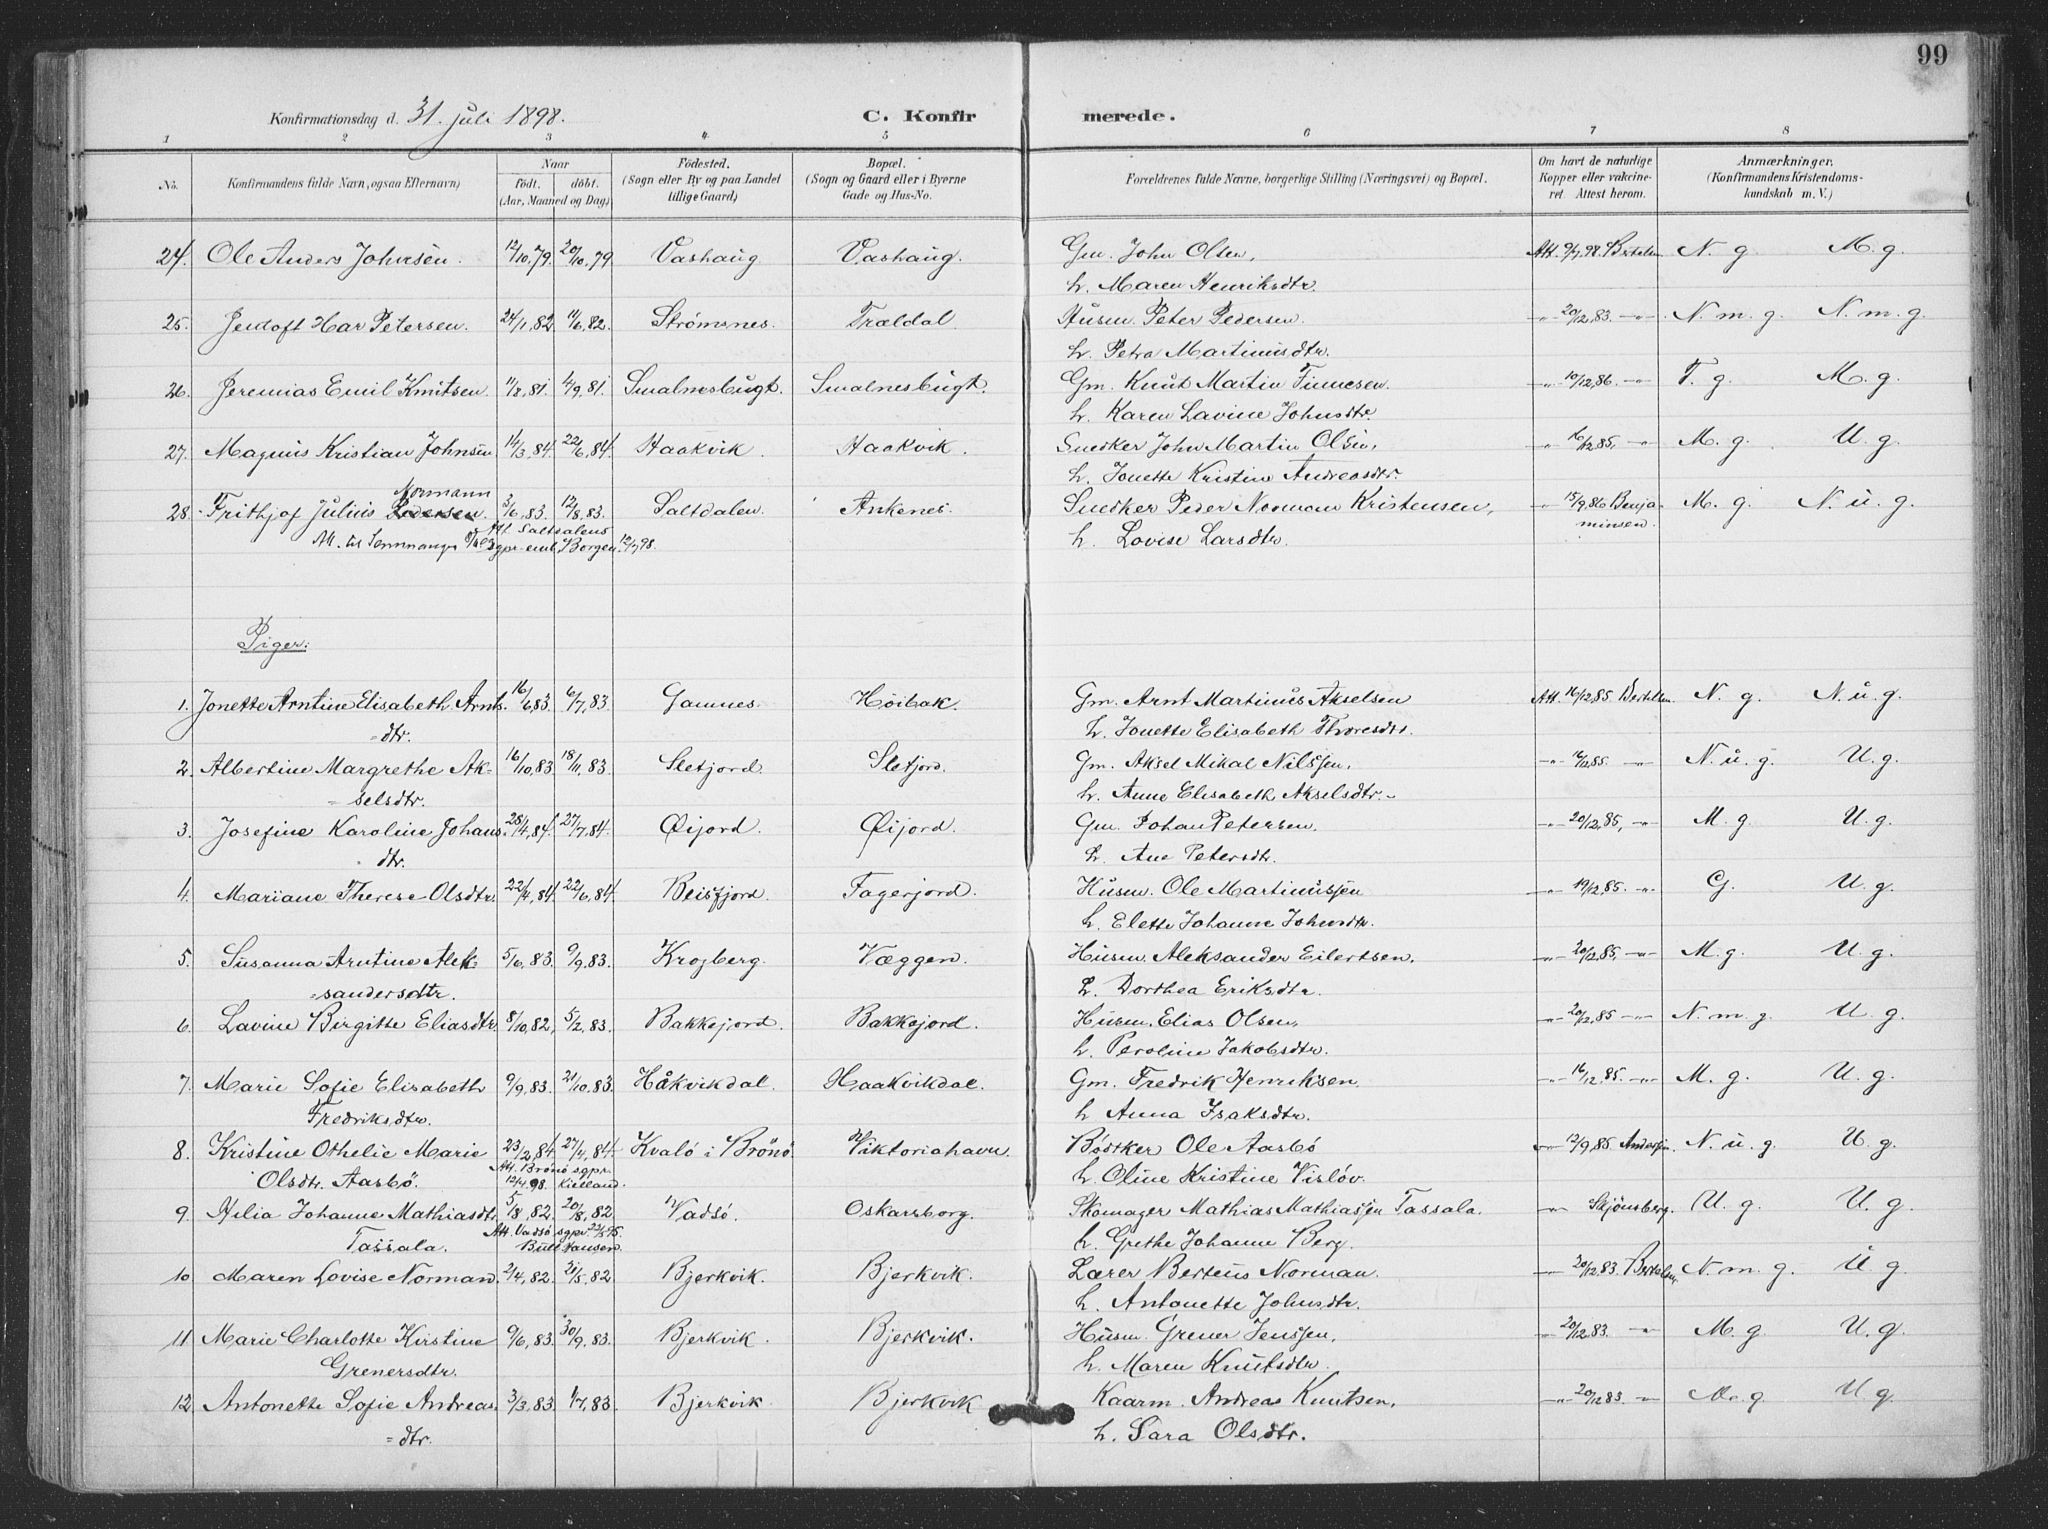 99
Konfirmationsdag d. 31. juli 1898. C. Konfirmerede.
1 2 3 4. 5 6 7 8
No. Konfirmandens fulde Navn, ogsaa Efternavn) Naar födt. döbt. (Aar, Maaned og Dag) Födested. (Sogn eller By og paa Landet tillige Gaard) Bopæl. (Sogn og Gaard eller i Byerne Gade og Hus-No. Forældrenes fulde Navne, borgerlige Stilling (Næringsvei) og Bopæl. Om havt de naturlige Kopper eller vakcineret. Attest herom. Anmærkninger. (Konfirmandens Kristendomskundskab m. V.)
24. Ole Anders Johnsen. 12/10,79. 20/10,79 Vashaug Vashaug. Gm. John Olsen, Att. 9/7,98. Bertelsen N. g. M. g.
h. Maren Henriksdtr.
25. Jentoft Har Petersen. 24/1,82 11/6,82. Strømsnes. Trældal. Husm. Peter Pedersen. -"- 20/12,83. -"- N. m. g. N. m. g.
h. Petra Martinusdtr.
26. Jeremias Emil Knutsen. 11/8,81. 4/9,81. Smalnesbugt. Smalnesbugt. Gm. Knut Martin Finnesen. -"- 10/12,86. -"- T. g. M. g.
h. Karen Lavine Johnsdtr.
27. Magnus Kristian Johnsen 14/3,84. 22/6,84. Haakvik. Haakvik. Snedker John Martin Olsen, -"- 16/12,85, -"- M. g. U. g.
h. Jonette Kristine Andreasdtr.
Normann
28. Frithjof Julius Pedersen. 3/6,83. 12/8,83. Saltdalen. Ankenes. Snedker Peder Norman Kristensen, -"- 15/9,86 Benjaminsen. M. g. N. u. g.
Att. Saltdalens sgpr.emb. Borgen. 12/7,98. h. Lovise Larsdtr.
Piger:
1. Jonette Arntine Elisabeth Arnts. 16/6,83 6/7,83. Gamnes. Høibak. Gm. Arnt Martinus Akselsen Att. 16/12,85 Bertelsen. N. g. N. u. g.
=dtr. h. Jonette Elisabeth Thoresdtr.
2. Albertine Margrethe Ak= 16/10,83 18/11,83. Sletjord. Sletjord. Gm. Aksel Mikal Nilssen. -"- 16/12,85. -"- N. u. g. U. g.
=selsdtr. h. Anne Elisabeth Akselsdtr.
3. Josefine Karoline Johans. 28/4,84. 27/7,84. Øijord. Øijord. Gm. Johan Petersen. -"- 20/12,85, -"- M. g. U. g.
dtr. h. Ane Petersdtr.
4. Mariane Therese Olsdtr. 22/4,84. 22/6,84. Beisfjord. Fagerjord. Husm. Ole Martinussen -"- 19/12,85. -"- G. U. g.
h. Elette Johanne Johnsdtr.
5. Susanna Arntine Alek= 5/6,83. 9/9,83. Krogberg. Væggen. Husm. Aleksander Eilertsen. -"- 20/12,85, -"- M. g. U. g.
=sandersdtr. h. Dorthea Eriksdtr.
6. Lavine Birgitte Eliasdtr. 8/10,82, 5/2,83. Bakkejord. Bakkejord. Husm. Elias Olsen, -"- 20/12,85 -"- N. m. g. U. g.
h. Peroline Jakobsdtr.
7. Marie Sofie Elisabeth 9/9,83. 21/10,83. Håkvikdal. Haakvikdal. Gm. Fredrik Henriksen. -"- 16/12,85. -"- M. g. U. g.
Fredriksdtr. h Anna Isaksdtr.
8. Kristine Othelie Marie 23/2,84. 27/4,84. Kvalö i Brönö. Viktoriahavn Bödtker Ole Aasbö -"- 12/9,85 Anderssen. N. u. g. U. g.
Olsdtr. Aasbö. Att. Brönö sgpr. 12/4,98. Kielland. h. Oline Kristine Vislöv.
9. Hilia Johanne Mathiasdtr. 5/8,82. 20/8,82 Vadsö. Oskarsborg. Skomager Mathias Mathiassen Tassala. -"- Skjönsberg. U. g. U. g.
Tassala. Att. Vadsö sgpr. Bull Hansen. h. Grethe Johanne Berg.
10 Maren Lovise Norman. 21/4,82. 31/5,82 Bjerkvik. Bjerkvik. Lærer Berteus Norman. -"- 20/12,83. Bertelsen. N. m. g. U. g.
h. Antonette Johnsdtr.
11 Marie Charlotte Kirstine 9/6,83. 30/9,83. Bjerkvik. Bjerkvik. Husm. Grener Jenssen, -"- 20/12,83. -"- M. g. U. g.
Grenersdtr. h. Maren Knutsdtr.
12. Antonette Sofie Andreas. 3/3,83. 1/7,83. Bjerkvik. Bjerkvik Kaarm. Andreas Knutsen, -"- 20/12,83 -"- M. g U. g.
=dtr. h. Sara Olsdtr.